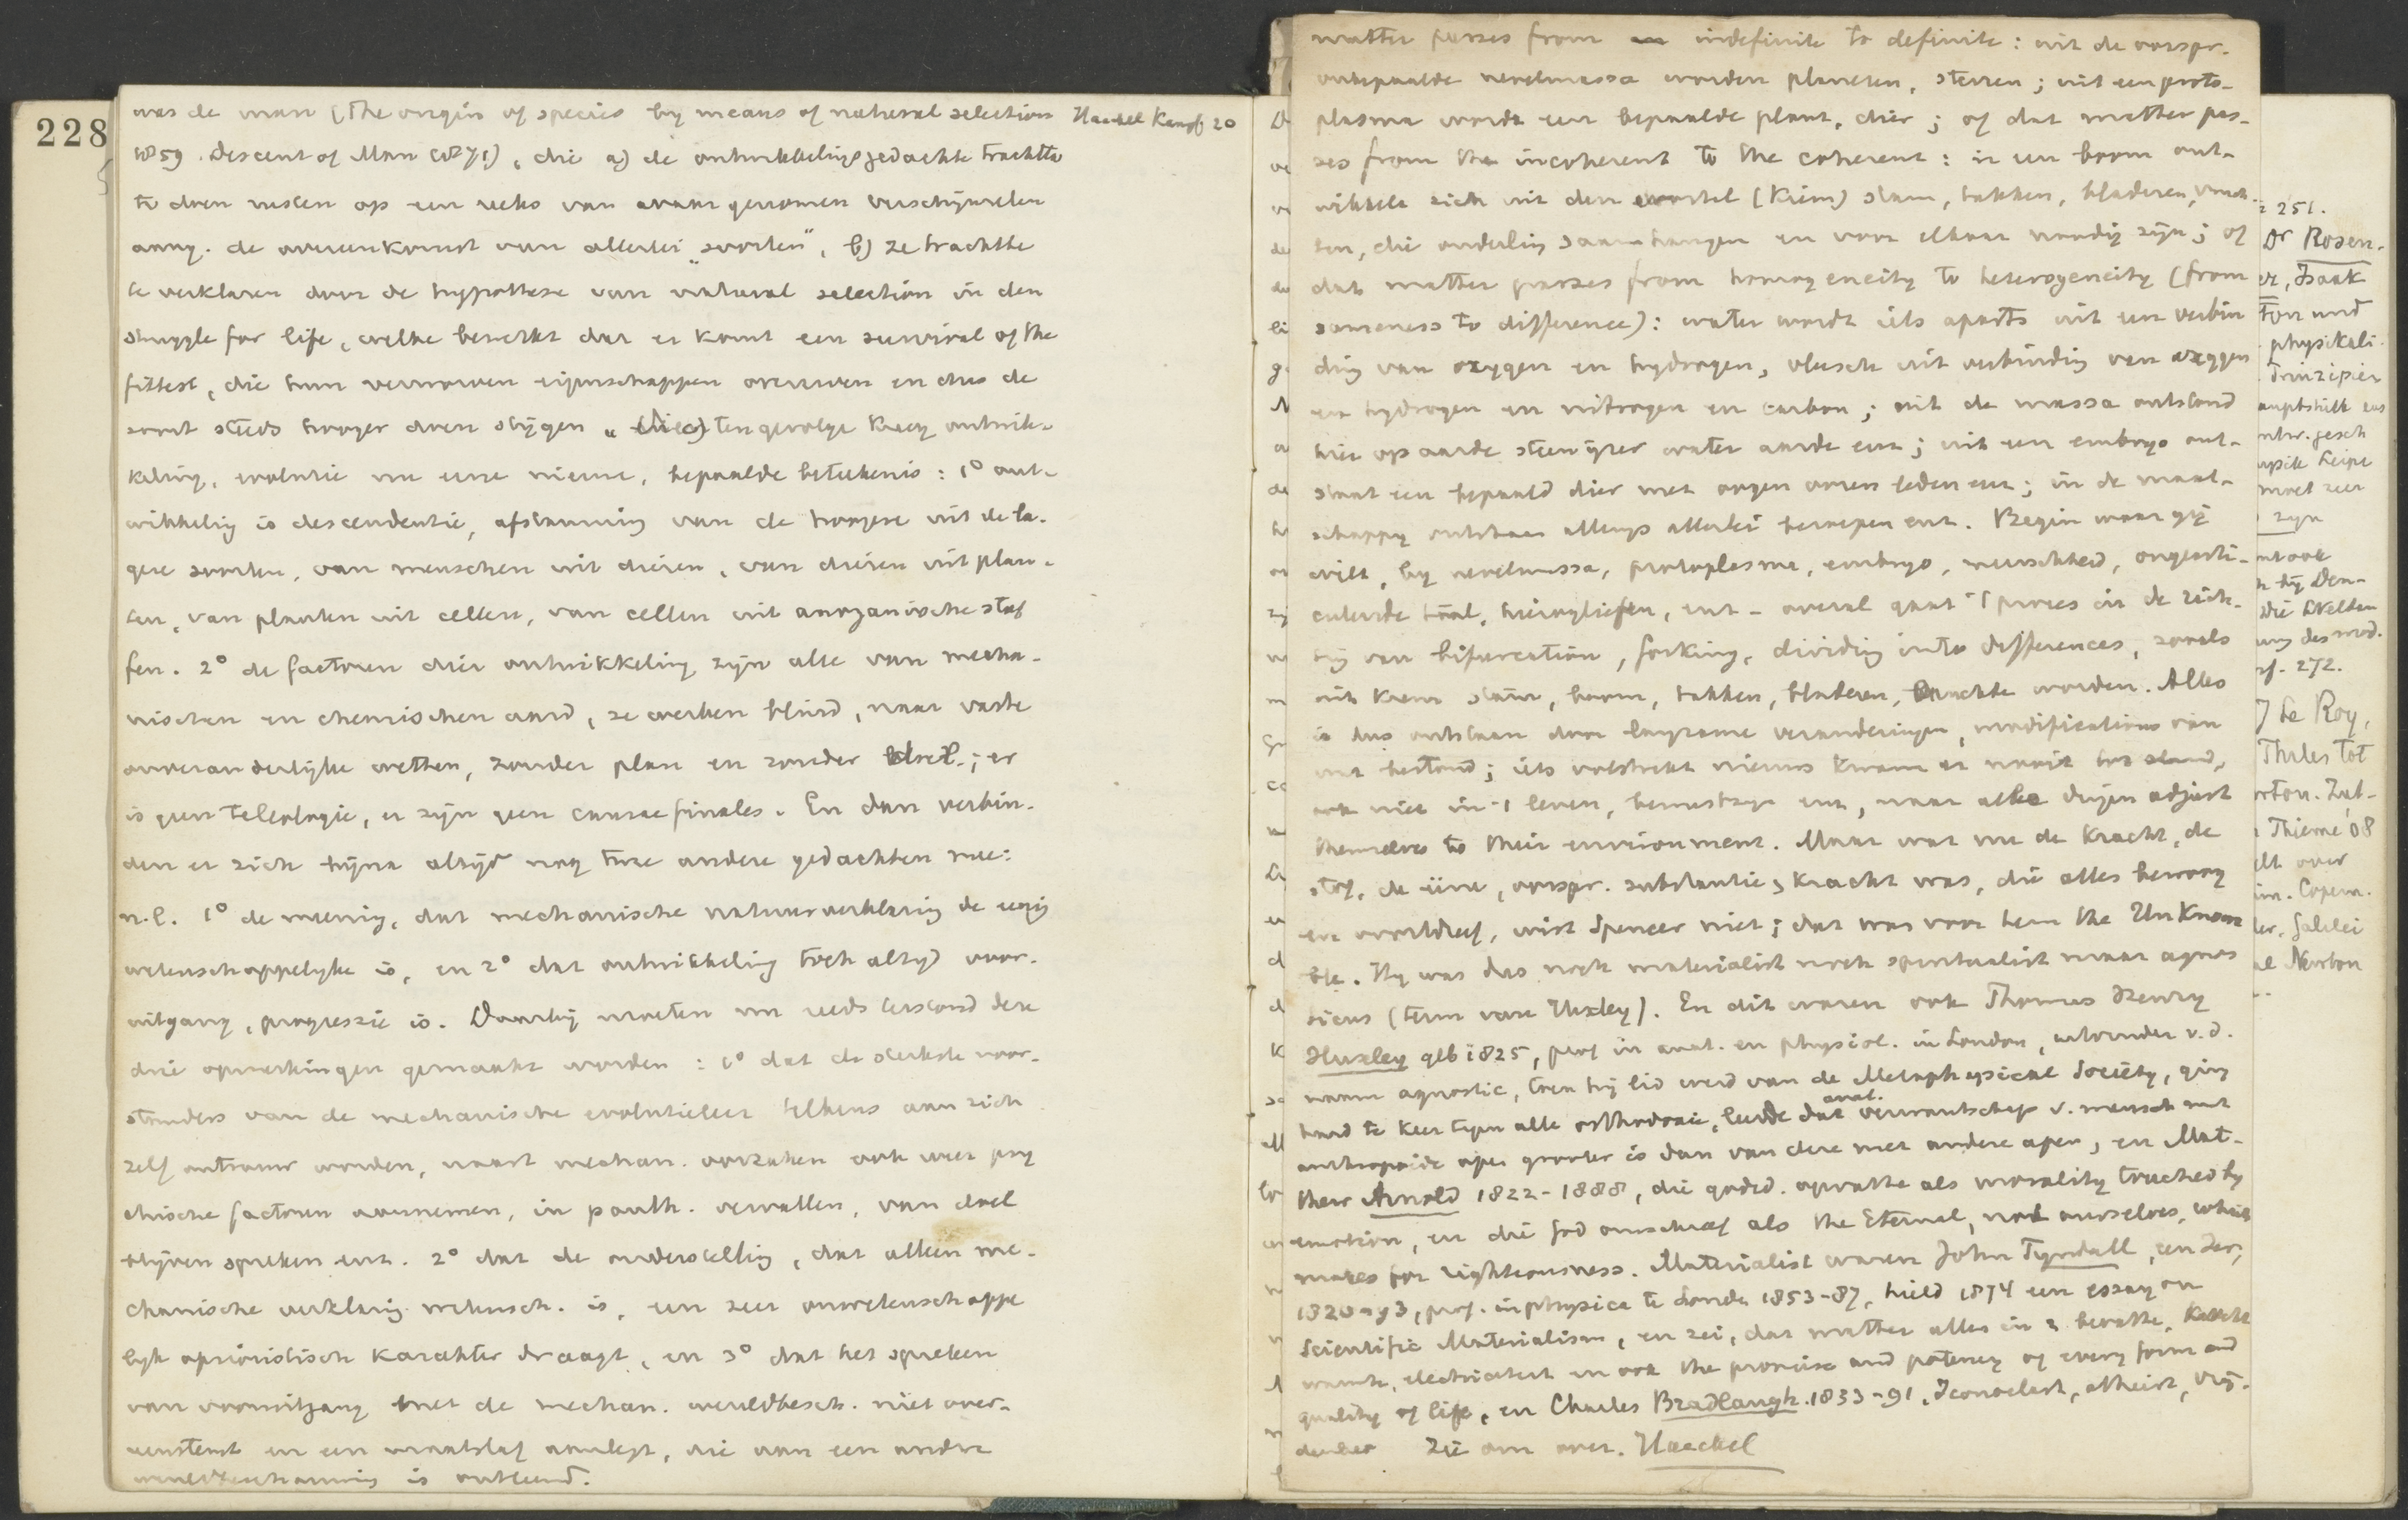 228
was de man (The origin of species by means of natural selection
1859. Descent of Man 1871), die a) de ontwikkelingsgedachte trachtte
te doen rusten op een reeks van waargenomen verschijnselen
aang. de overeenkomst van allerlei „soorten", b) ze trachtte
te verklaren door de hypothese van natural selection in den
struggle for life, welke bewerkt dat er komt een survival of the
fittest, die hun verworven eigenschappen overerven en dus de
soort steeds hooger doen stijgen. Tengevolge kreeg ontwik-
keling, evolutie nu eene nieuwe, bepaalde beteekenis: 1° ont-
wikkeling is descendentie, afstamming van de hoogere uit de la-
gere soorten, van menschen uit dieren, van dieren uit plan-
ten, van planten uit cellen, van cellen uit anorganische stof
fen. 2° de factoren dier ontwikkeling zijn alle van mecha-
nischen en chemischen aard, ze werken blind, naar vaste
onveranderlijke wetten, zonder plan en zonder doel; er
is geen teleologie, er zijn geen causae finales. En dan verbin-
den er zich bijna altijd nog twee andere gedachten mee:
n.l. 1° de meening, dat mechanische natuurverklaring de eenig
wetenschappelijke is, en 2° dat ontwikkeling toch altijd voor-
uitgang, progressie is. Daarbij moeten nu reeds terstond deze
drie opmerkingen gemaakt worden: 1° dat de sterkste voor-
standers van de mechanische evolutieleer telkens aan zich
zelf ontrouw worden, naast mechan. oorzaken ook weer psy
chische factoren aannemen, in panth. vervallen, van doel
blijven spreken enz. 2° dat de onderstelling, dat alleen me-
chanische verklaring wetensch. is, een zeer onwetenschappe
lijk aprioristisch karakter draagt, en 3° dat het spreken
van vooruitgang met de mechan. wereldbesch. niet over-
eenstemt en een maatstaf aanlegt, die aan een andere
wereldbeschouwing is ontleend.
Haeckel Kampf 20
matter passes from indefinite to definite: uit de oorspr.
onbepaalde nevelmassa worden planeten, sterren; uit een proto-
plasma wordt een bepaalde plant, dier; of dat matter pas-
ses from the incoherent to the coherent: in een boom ont-
wikkelt zich uit den wortel (kiem) stam, takken, bladeren, vruch-
ten, die onderling samenhangen en voor elkaar noodig zijn; of
dat matter passes from homogeneity to heterogeneity (from
sameness to difference): water wordt iets aparts uit een verbin
ding van oxygen en hydrogen, vleesch uit verbinding van oxygen
en hydrogen en nitrogen en carbon; uit de massa ontstond
hier op aarde steen ijzer water aarde enz; uit een embryo ont-
staat een bepaald dier met oogen ooren leden enz; in de maat-
schappij ontstaan allengs allerlei beroepen enz. Begin waar gij
wilt, bij nevelmassa, protoplasma, embryo, menschheid, ongearti-
culeerde taal, hieroglyfen, enz - overal gaat 't proces in de rich-
ting van bifurcation, forking, dividing into differences, zooals
uit kiem stam, boom, takken, bladeren, vruchten worden. Alles
is dus ontstaan door langzame veranderingen, modifications van
wat bestond; iets volstrekt nieuws kwam er nooit tot stand,
ook niet in 't leven, bewustzijn enz, maar alle dingen adjust
themselves to their environment. Maar wat nu de kracht, de
stof, de ééne, oorspr. substantie, kracht was, die alles bewoog
en voortdreef, wist Spencer niet; dat was voor hem the Unknowa
ble. Hij was dus noch materialist noch spiritualist maar agnos
ticus (term van Huxley). En dit waren ook Thomas Henry
Huxley geb 1825, prof in anat. en physiol. in London, uitvinder v.d.
naam agnostic, toen hij lid werd van de Metaphysical Society, ging
hard te keer tegen alle orthodoxie, leerde dat anat. verwantschap v. mensch met
anthropoide apen grooter is dan van deze met andere apen, en Mat-
thew Arnold 1822-1888, die godsd. opvatte als morality touched by
emotion, en die God omschreef als the Eternal, not ourselves, which
makes for righteousness. Materialist waren John Tyndall, een Ier,
1820-93, prof. in physica te Londen 1853-87, hield 1874 een essay on
Scientific Materialism, en zei, dat matter alles in z bevatte,
warmte, electriciteit en ook the promise and potency of every form and
quality of life, en Charles Bradlaugh 1833-91, Iconoclast, atheist, vrij-
denker Zie om over. Haeckel
251.
Dr Rosen-
er, Isaak
ton und
physikali
Prinzipien
gesch
Leipz
moet zeer
zijn
ook
bij Den-
Die Welten
des mod.
272.
de Roy,
Thales tot
Zut-
Thieme '08
over
Copern.
Galilei
Newton